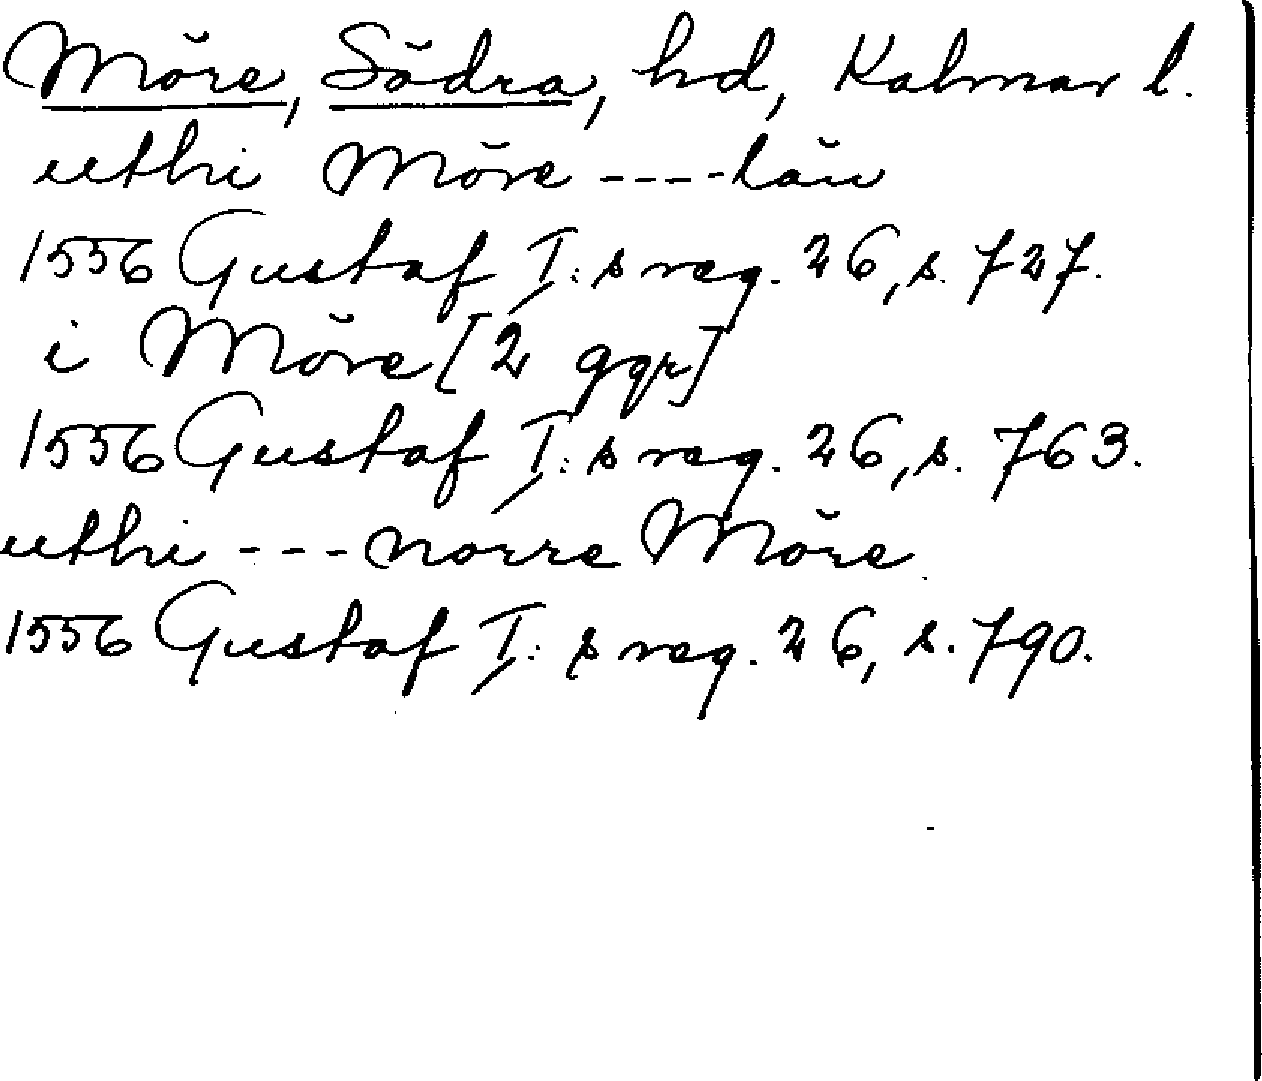 Möre, Södra, hd, Kalmar l.
uthi Möre ----län
1556 Gustaf I:s reg. 26, s. 727.
i Möre [2 ggr]
1556 Gustaf I:s reg. 26, s. 763.
uthi --- norre Möre
1556 Gustaf I:s reg. 26, s. 790.